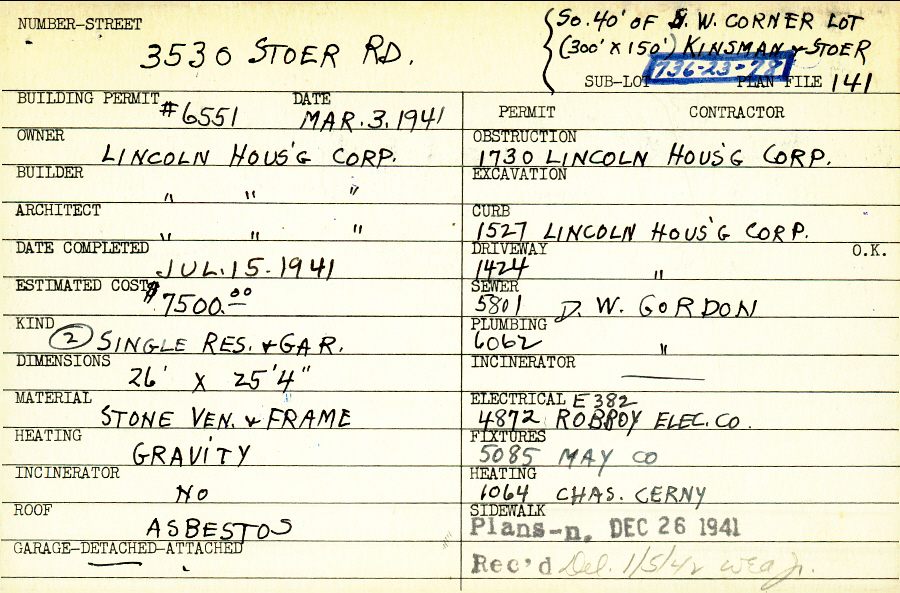 NUMBER-STREET
3530 STOER RD.
SO. 40' OF S. W. CORNER LOT
(300' X 150') KINSMAN & STOER
736-23-78
SUB-LOT PLAN FILE 141
BUILDING PERMIT #6551 DATE MAR. 3. 1941
OWNER
LINCOLN HOUS'G CORP.
BUILDER
" " "
ARCHITECT
" " "
DATE COMPLETED
JUL. 15. 1941
ESTIMATED COST $7500.00
KIND
(2) SINGLE RES. & GAR.
DIMENSIONS
26' X 25'4"
MATERIAL
STONE VEN. & FRAME
HEATING
GRAVITY
INCINERATOR
NO
ROOF
ASBESTOS
GARAGE-DETACHED-ATTACHED
PERMIT CONTRACTOR
OBSTRUCTION
1730 LINCOLN HOUS'G CORP.
EXCAVATION
CURB
1527 LINCOLN HOUS'G CORP.
DRIVEWAY O.K.
1424 "
SEWER
5801 D. W. GORDON
PLUMBING
6062 "
INCINERATOR
ELECTRICAL E 382
4872 ROBROY ELEC. CO.
FIXTURES
5085 MAY CO
HEATING
1064 CHAS. CERNY
SIDEWALK
Plans-n. DEC 26 1941
Rec'd Del. 1/5/42